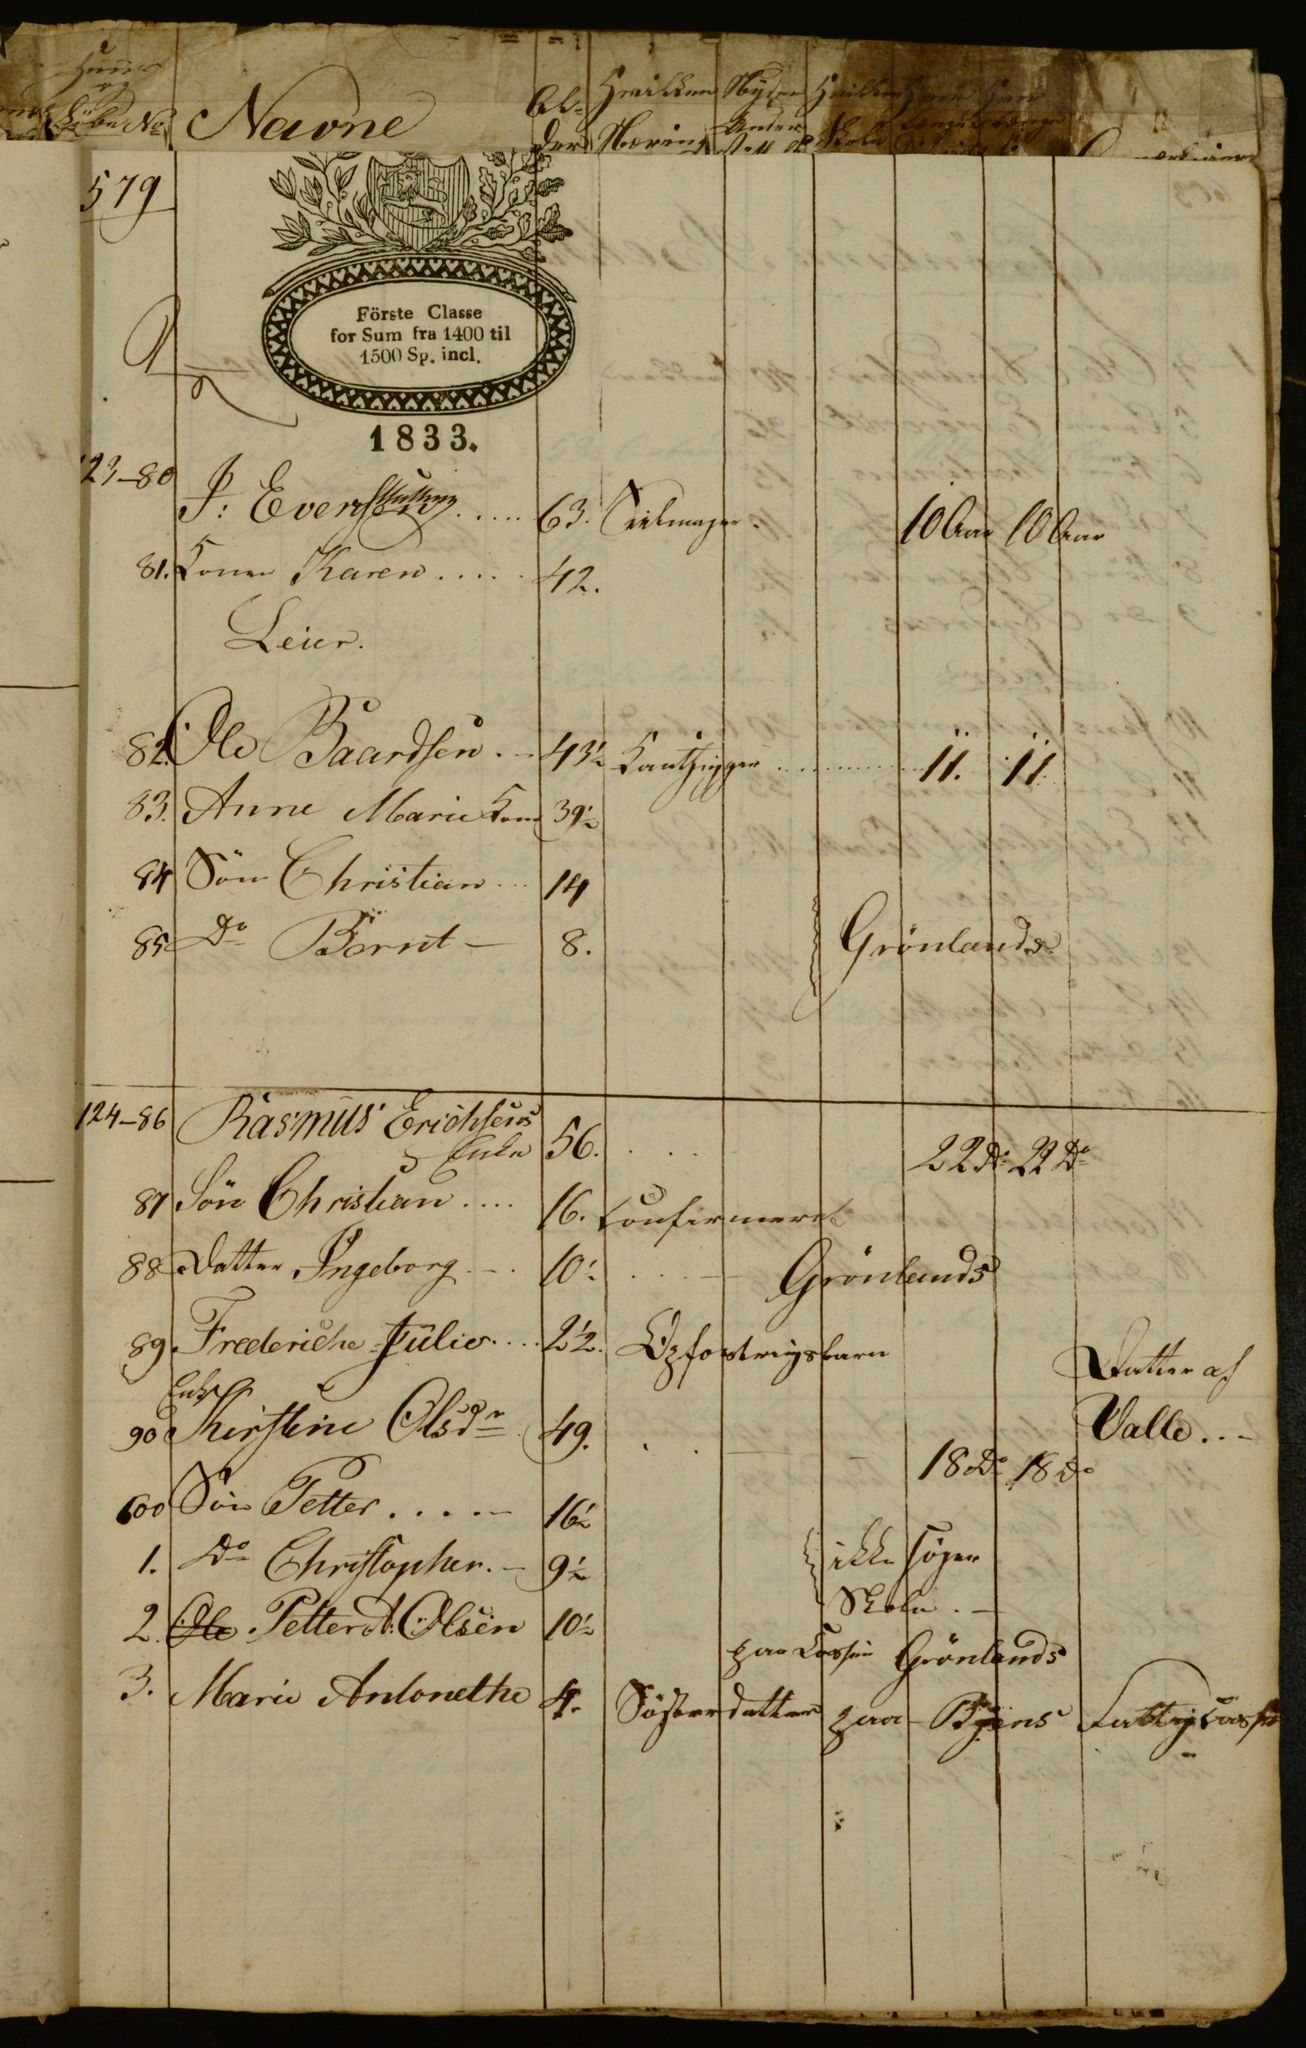 Huus og
Löbe No Navne Al- Hvilken Nyder Hvilken
der Næring Under Skole
579
Förste Classe
for Sum fra 1400 til
1500 Sp. incl.
1833.
123-80 J: Evensen 63. Seilmager. 10 Aar 10 Aar
81. Konen Karen ..... 42.
Leier.
82. Ole Baardsen .- 43½ 11. 11
83. Anne Marie Kone 39½
84 Sön Christian ... 14
85 Do Bernt - 8. Grönlands
124-86 Rasmus Erichsens
Enke 56. . . . 22 Do 22 Do
87 Sön Christian .... 16. Confirmeret
88 Datter Ingeborg -. 10½ . . . - Grönlands
89. Frederiche Julie .... 2½. Opfostringsbarn Datter af
Enke Valle . . -
90 Kirstine Olsdr 49. . . - 18 Do 18 Do
600 Sön Petter ..... 16½
1. Do Christopher. - 9½ ikke söger
Skole . -
2. Ole Petter A: Olsen 10½ paa Cassen Grönlands
3. Marie Antonethe 4. Sösterdatter paa Byens Fattigcasse